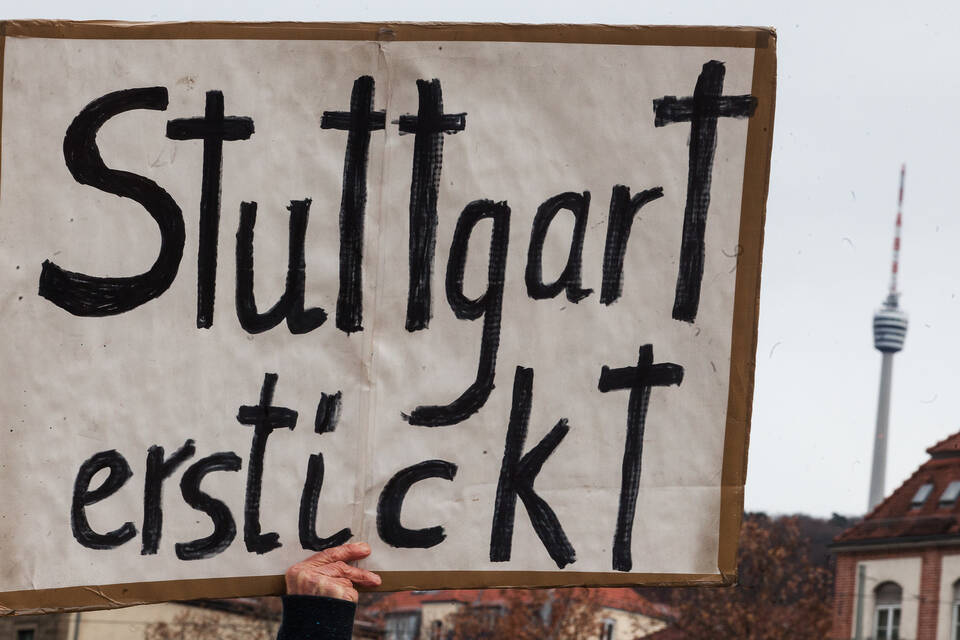 Stuttgart
erstickt